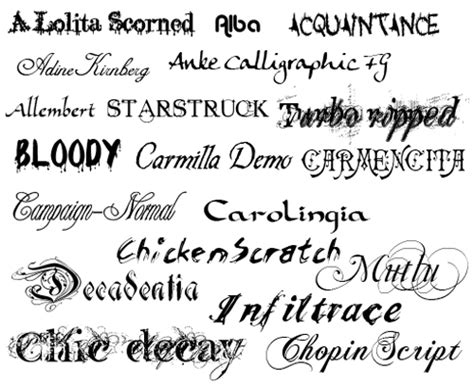 A Lolita Scorned Alba ACQUAINTANCE
Adine Kirnberg Anke Calligraphic FG
Allembert STARSTRUCK Turbo ripped
BLOODY Carmilla Demo CARMENCITA
Campaign-Normal Carolingia
ChickenScratch
Decadentia
Infiltrace
Chic decay Chopin Script